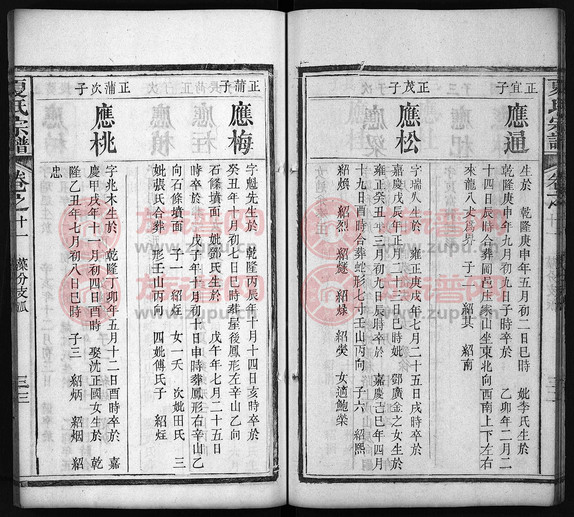 夏氏宗譜
正宜子
應通
生於 乾隆庚申年五月初二日巳時 妣李氏生於
乾隆庚申年九月初九日子時卒於 乙卯年二月二
十四日辰時合葬圓邑庄梁山坐東北向西南上下左右
來龍八丈爲界 子二 紹其 紹南
正茂子
應松
字瑞人生於 雍正庚戌年七月二十五日戌時卒於
嘉慶戊辰年正月二十三日辰時 妣 鄧廣金之女生於
雍正癸丑年三月初九日辰時卒於 嘉慶己巳年四月
十九日酉時合葬蛇形七寸壬山丙向 子六 紹熙
紹燃 紹烈 紹 紹 紹 女適鮑榮
正蒲子
應梅
字魁先生於 乾隆丙辰年十月十四日亥時卒於
癸丑年八月初七日巳時葬屋後鳳形左辛山乙向
石條墳面 妣鄧氏生於 戊午年七月二十五日
時卒於 戊子年十月初十日申時葬鳳形右辛山乙
向石條墳面 子一 紹炡 女一夭 次妣田氏 三
妣張氏合葬 形壬山丙向 四妣傅氏子 紹炡
正蒲次子
應桃
字兆木生於 乾隆丁卯年五月十二日酉時卒於 嘉
慶甲戌年十一月初四日酉時 娶沈正國女生於 乾
隆乙丑年七月初八日巳時 子三 紹炳 紹烟 紹
忠
夏氏宗譜 卷之十一 藻分支派 三三
族譜網
www.zupu.cn